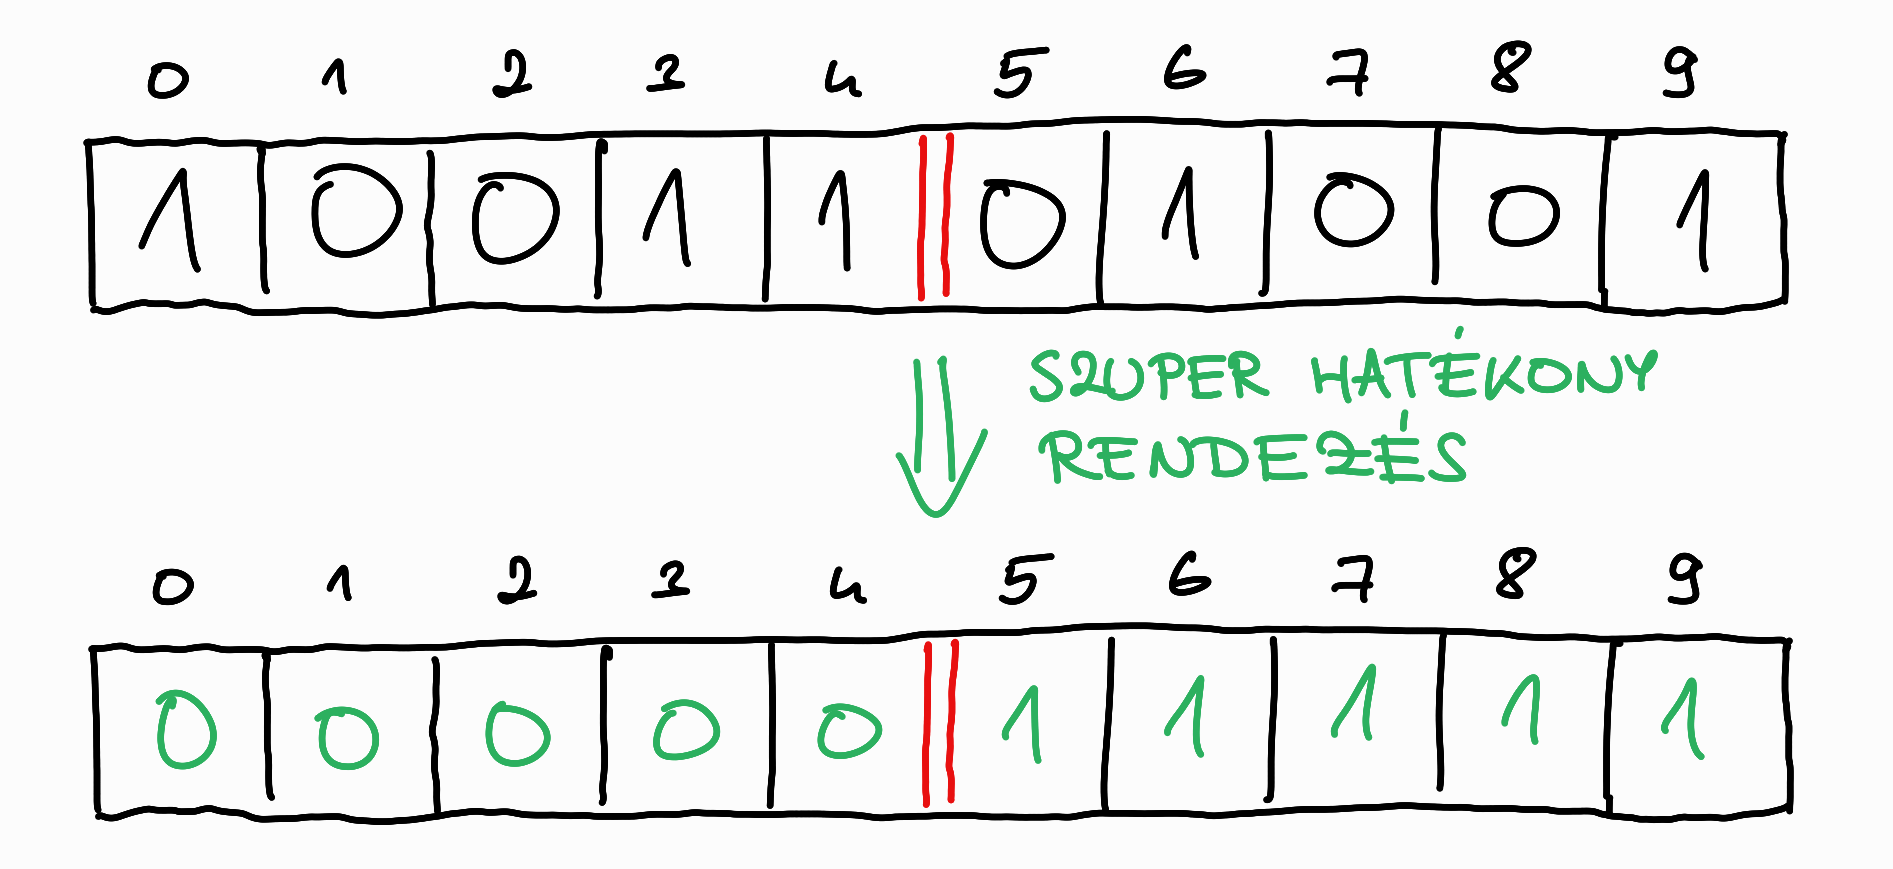 0 1 2 3 4 5 6 7 8 9
1 0 0 1 1 0 1 0 0 1
SZUPER HATÉKONY
RENDEZÉS
0 1 2 3 4 5 6 7 8 9
0 0 0 0 0 1 1 1 1 1